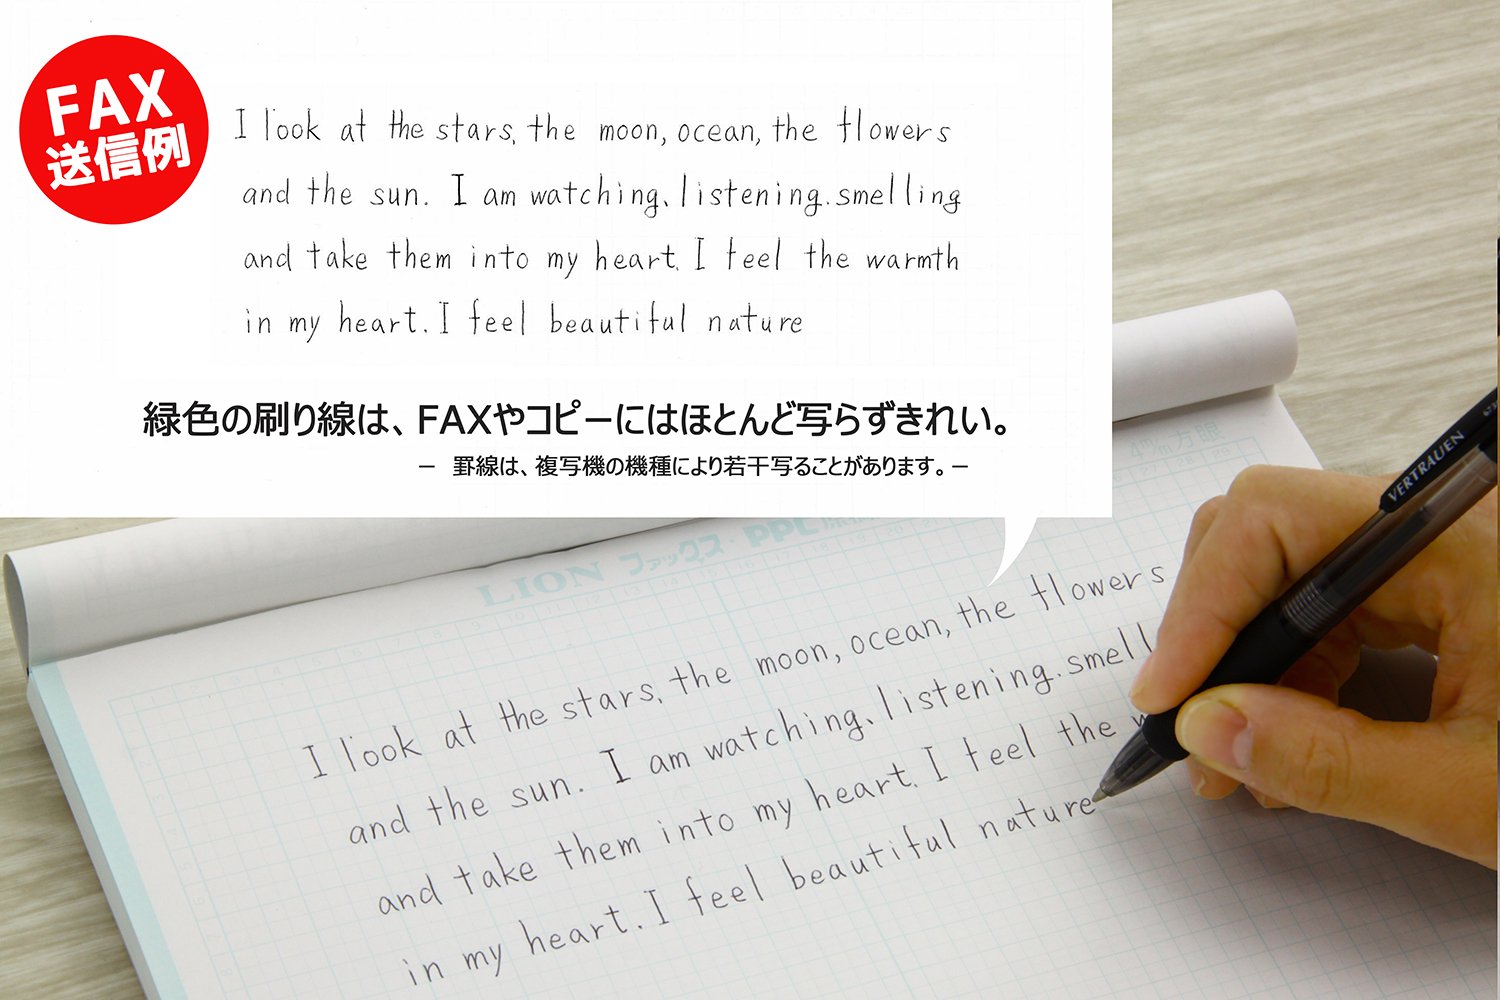 FAX
送信例
I look at the stars, the moon, ocean, the flowers
and the sun. I am watching, listening. smelling
and take them into my heart. I feel the warmth
in my heart. I feel beautiful nature
緑色の刷り線は、FAXやコピーにはほとんど写らずきれい。
― 罫線は、複写機の機種により若干写ることがあります。―
4㎜方眼
VERTRAUEN
LION ファックス・PPC
I look at the stars, the moon, ocean, the flowers
and the sun. I am watching, listening. smell
and take them into my heart. I feel the w
in my heart. I feel beautiful nature